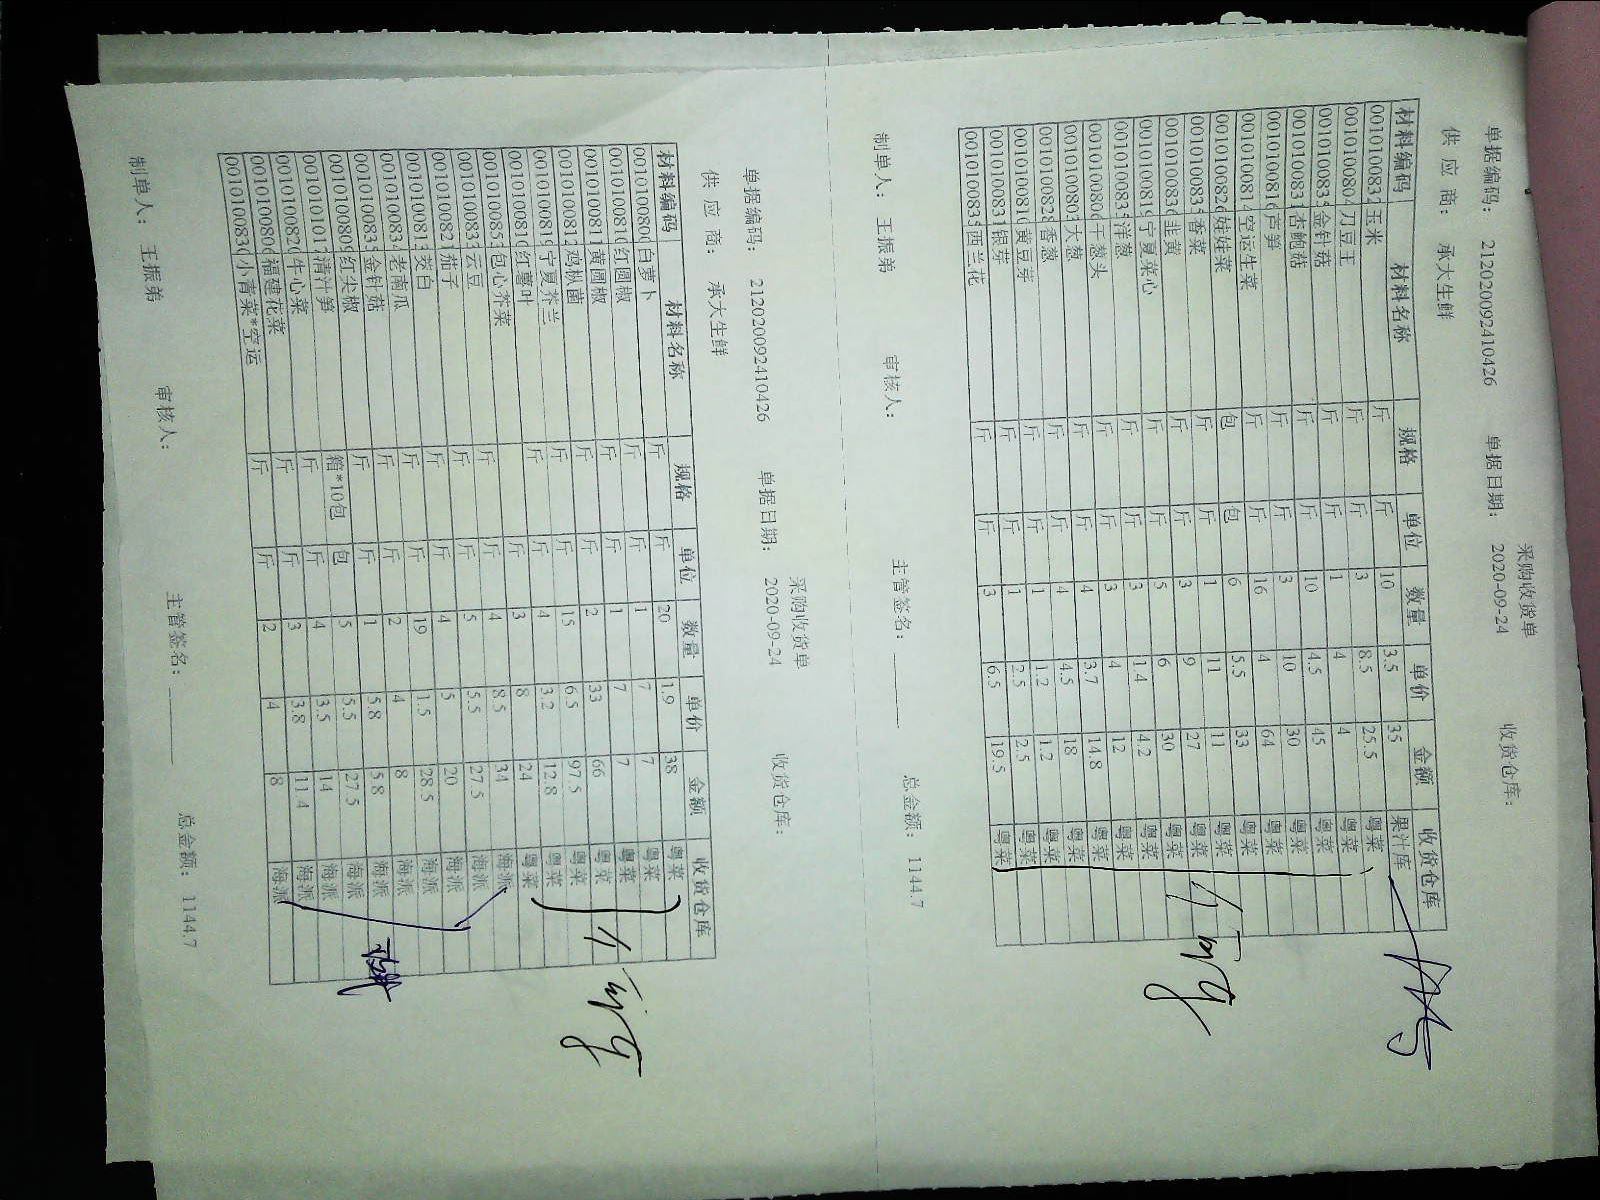 采购收货单
单据编码: 212020092410426 单据日期: 2020-09-24 收货仓库:
供 应 商: 承大生鲜
材料编码 材料名称 规格 单位 数量 单价 金额 收货仓库
0010100832 玉米 斤 斤 10 3.5 35 果汁库
001010080 刀豆王 斤 斤 3 8.5 25.5 粤菜
001010083 金针菇 斤 斤 1 4 4 粤菜
001010083 杏鲍菇 斤 斤 10 4.5 45 粤菜
001010081 芦笋 斤 斤 3 10 30 粤菜
001010081 空运生菜 斤 斤 16 4 64 粤菜
001010082 娃娃菜 包 包 6 5.5 33 粤菜
001010083 香菜 斤 斤 1 11 11 粤菜
001010083 韭黄 斤 斤 3 9 27 粤菜
001010081 宁夏菜心 斤 斤 5 6 30 粤菜
001010083 洋葱 斤 斤 3 1.4 4.2 粤菜
001010080 干葱头 斤 斤 3 4 12 粤菜
001010080 大葱 斤 斤 4 3.7 14.8 粤菜
001010082 香葱 斤 斤 4 4.5 18 粤菜
001010081 黄豆芽 斤 斤 1 1.2 1.2 粤菜
001010083 银芽 斤 斤 1 2.5 2.5 粤菜
001010083 西兰花 斤 斤 3 6.5 19.5 粤菜
制单人: 王振弟 审核人: 主管签名: 总金额: 1144.7
采购收货单
单据编码: 212020092410426 单据日期: 2020-09-24 收货仓库:
供 应 商: 承大生鲜
材料编码 材料名称 规格 单位 数量 单价 金额 收货仓库
001010080 白萝卜 斤 斤 20 1.9 38 粤菜
001010081 红圆椒 斤 斤 1 7 7 粤菜
001010081 黄圆椒 斤 斤 1 7 7 粤菜
001010081 鸡枞菌 斤 斤 2 33 66 粤菜
001010081 宁夏芥兰 斤 斤 15 6.5 97.5 粤菜
001010081 红薯叶 斤 斤 4 3.2 12.8 粤菜
001010085 包心芥菜 斤 3 8 24 粤菜
001010083 云豆 斤 斤 4 8.5 34 海派
001010082 茄子 斤 斤 5 5.5 27.5 海派
001010081 茭白 斤 斤 4 5 20 海派
001010083 老南瓜 斤 斤 19 1.5 28.5 海派
001010083 金针菇 斤 斤 2 4 8 海派
001010080 红尖椒 斤 斤 1 5.8 5.8 海派
001010101 清汁笋 箱*10包 包 5 5.5 27.5 海派
001010082 牛心菜 斤 斤 4 3.5 14 海派
001010080 福建花菜 斤 斤 3 3.8 11.4 海派
001010083 小青菜*空运 斤 斤 2 4 8 海派
制单人: 王振弟 审核人: 主管签名: 总金额: 1144.7